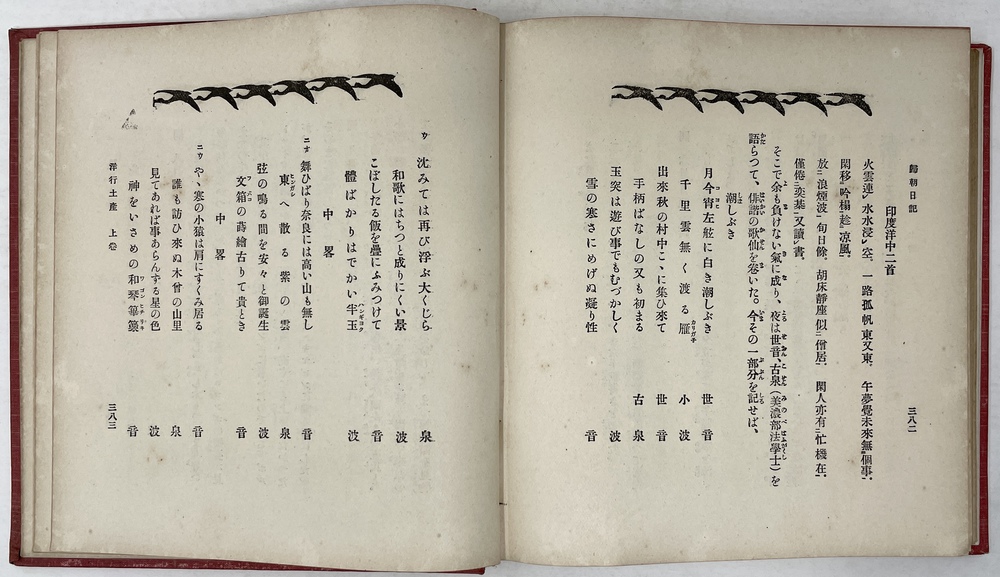 歸朝日記
三八二
印度洋中二首
火雲連水水浸空。一路孤帆東又東。午夢覺來無個事。
閑移吟榻趁凉風。
放浪煙波旬日餘。胡床靜座似僧居。閑人亦有忙機在。
僅倦奕棊又讀書。
そこで余も負けない氣に成り、夜は世音、古泉(美濃部法學士)を
語らつて、俳諧の歌仙を卷いた。今その一部分を記せば、
潮しぶき
月今宵左舷に白き潮しぶき 世音
千里雲無く渡る雁 小波
出來秋の村中こゝに集ひ來て 世音
手柄ばなしの又も初まる 古泉
玉突は遊び事でもむづかしく 波
雪の寒さにめげぬ凝り性 音
ウ 沈みては再び浮ぶ大くじら 泉
和歌にはちつと成りにくい景 波
こぼしたる飯を疊にふみつけて 音
體ばかりはでかい半玉 波
中略
ニオ 舞ひばり奈良には高い山も無し 音
東へ散る紫の雲 泉
弦の鳴る間を安々と御誕生 波
文箱の蒔繪古りて貴とき 音
中略
ニウ やゝ寒の小猿は肩にすくみ居る 音
誰も訪ひ來ぬ木曾の山里 泉
見てあれば事あらんずる星の色 波
神をいさめの和琴篳篥 音
洋行土産 上卷
三八三